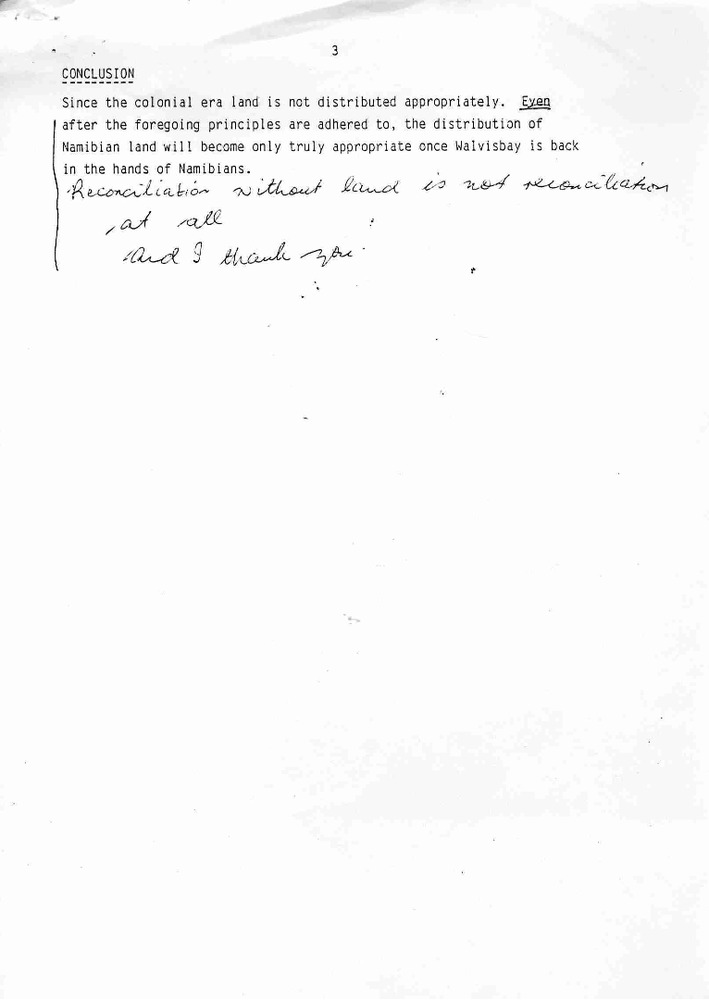 3
CONCLUSION
Since the colonial era land is not distributed appropriately. Even
after the foregoing principles are adhered to, the distribution of
Namibian land will become only truly appropriate once Walvisbay is back
in the hands of Namibians.
Reconciliation without land is not reconciliation
at all
and I thank you.